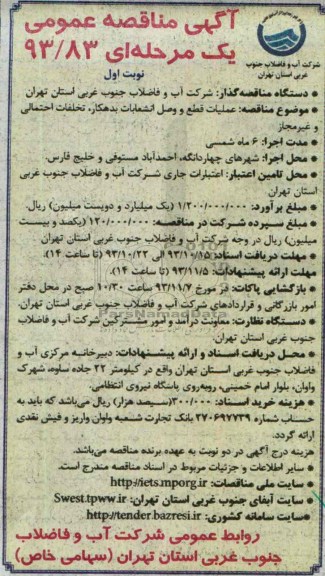 آگهی مناقصه عمومی
یک مرحله‌ای ۹۳/۸۳
نوبت اول
شرکت آب و فاضلاب جنوب
غربی استان تهران
• دستگاه مناقصه‌گذار: شرکت آب و فاضلاب جنوب غربی استان تهران
• موضوع مناقصه: عملیات قطع و وصل انشعابات بدهکار، تخلفات احتمالی
و غیرمجاز
• مدت اجرا: ۶ ماه شمسی
• محل اجرا: شهرهای چهاردانگه، احمدآباد مستوفی و خلیج فارس.
• محل تامین اعتبار: اعتبارات جاری شرکت آب و فاضلاب جنوب غربی
استان تهران
• مبلغ برآورد: ۱/۲۰۰/۰۰۰/۰۰۰ (یک میلیارد و دویست میلیون) ریال.
• مبلغ سپرده شرکت در مناقصه: ۱۲۰/۰۰۰/۰۰۰ (یکصد و بیست
میلیون) ریال در وجه شرکت آب و فاضلاب جنوب غربی استان تهران
• مهلت دریافت اسناد: ۹۳/۱۰/۱۵ الی ۹۳/۱۰/۲۲ (تا ساعت ۱۴).
مهلت ارائه پیشنهادات: ۹۳/۱۱/۵ (تا ساعت ۱۴).
• بازگشایی پاکات: در مورخ ۹۳/۱۱/۷ ساعت ۱۰/۳۰ صبح در محل دفتر
امور بازرگانی و قراردادهای شرکت آب و فاضلاب جنوب غربی استان تهران.
• دستگاه نظارت: معاونت درآمد و امور مشترکین شرکت آب و فاضلاب
جنوب غربی استان تهران.
• محل دریافت اسناد و ارائه پیشنهادات: دبیرخانه مرکزی آب و
فاضلاب جنوب غربی استان تهران واقع در کیلومتر ۲۲ جاده ساوه، شهرک
واوان، بلوار امام خمینی، روبه‌روی پاسگاه نیروی انتظامی.
• هزینه خرید اسناد: ۳۰۰/۰۰۰ (سیصد هزار) ریال می‌باشد که باید به
حساب شماره ۲۷۰۶۹۷۷۳۹ بانک تجارت شعبه واوان واریز و فیش نقدی
ارائه گردد.
هزینه درج آگهی در دو نوبت به عهده برنده مناقصه می‌باشد.
• سایر اطلاعات و جزئیات مربوط در اسناد مناقصه مندرج است.
• سایت ملی مناقصات: http://iets.mporg.ir
• سایت آبفای جنوب غربی استان تهران: Swest.tpww.ir
• سایت سامانه کشوری: http://tender.bazresi.ir
روابط عمومی شرکت آب و فاضلاب
جنوب غربی استان تهران (سهامی خاص)